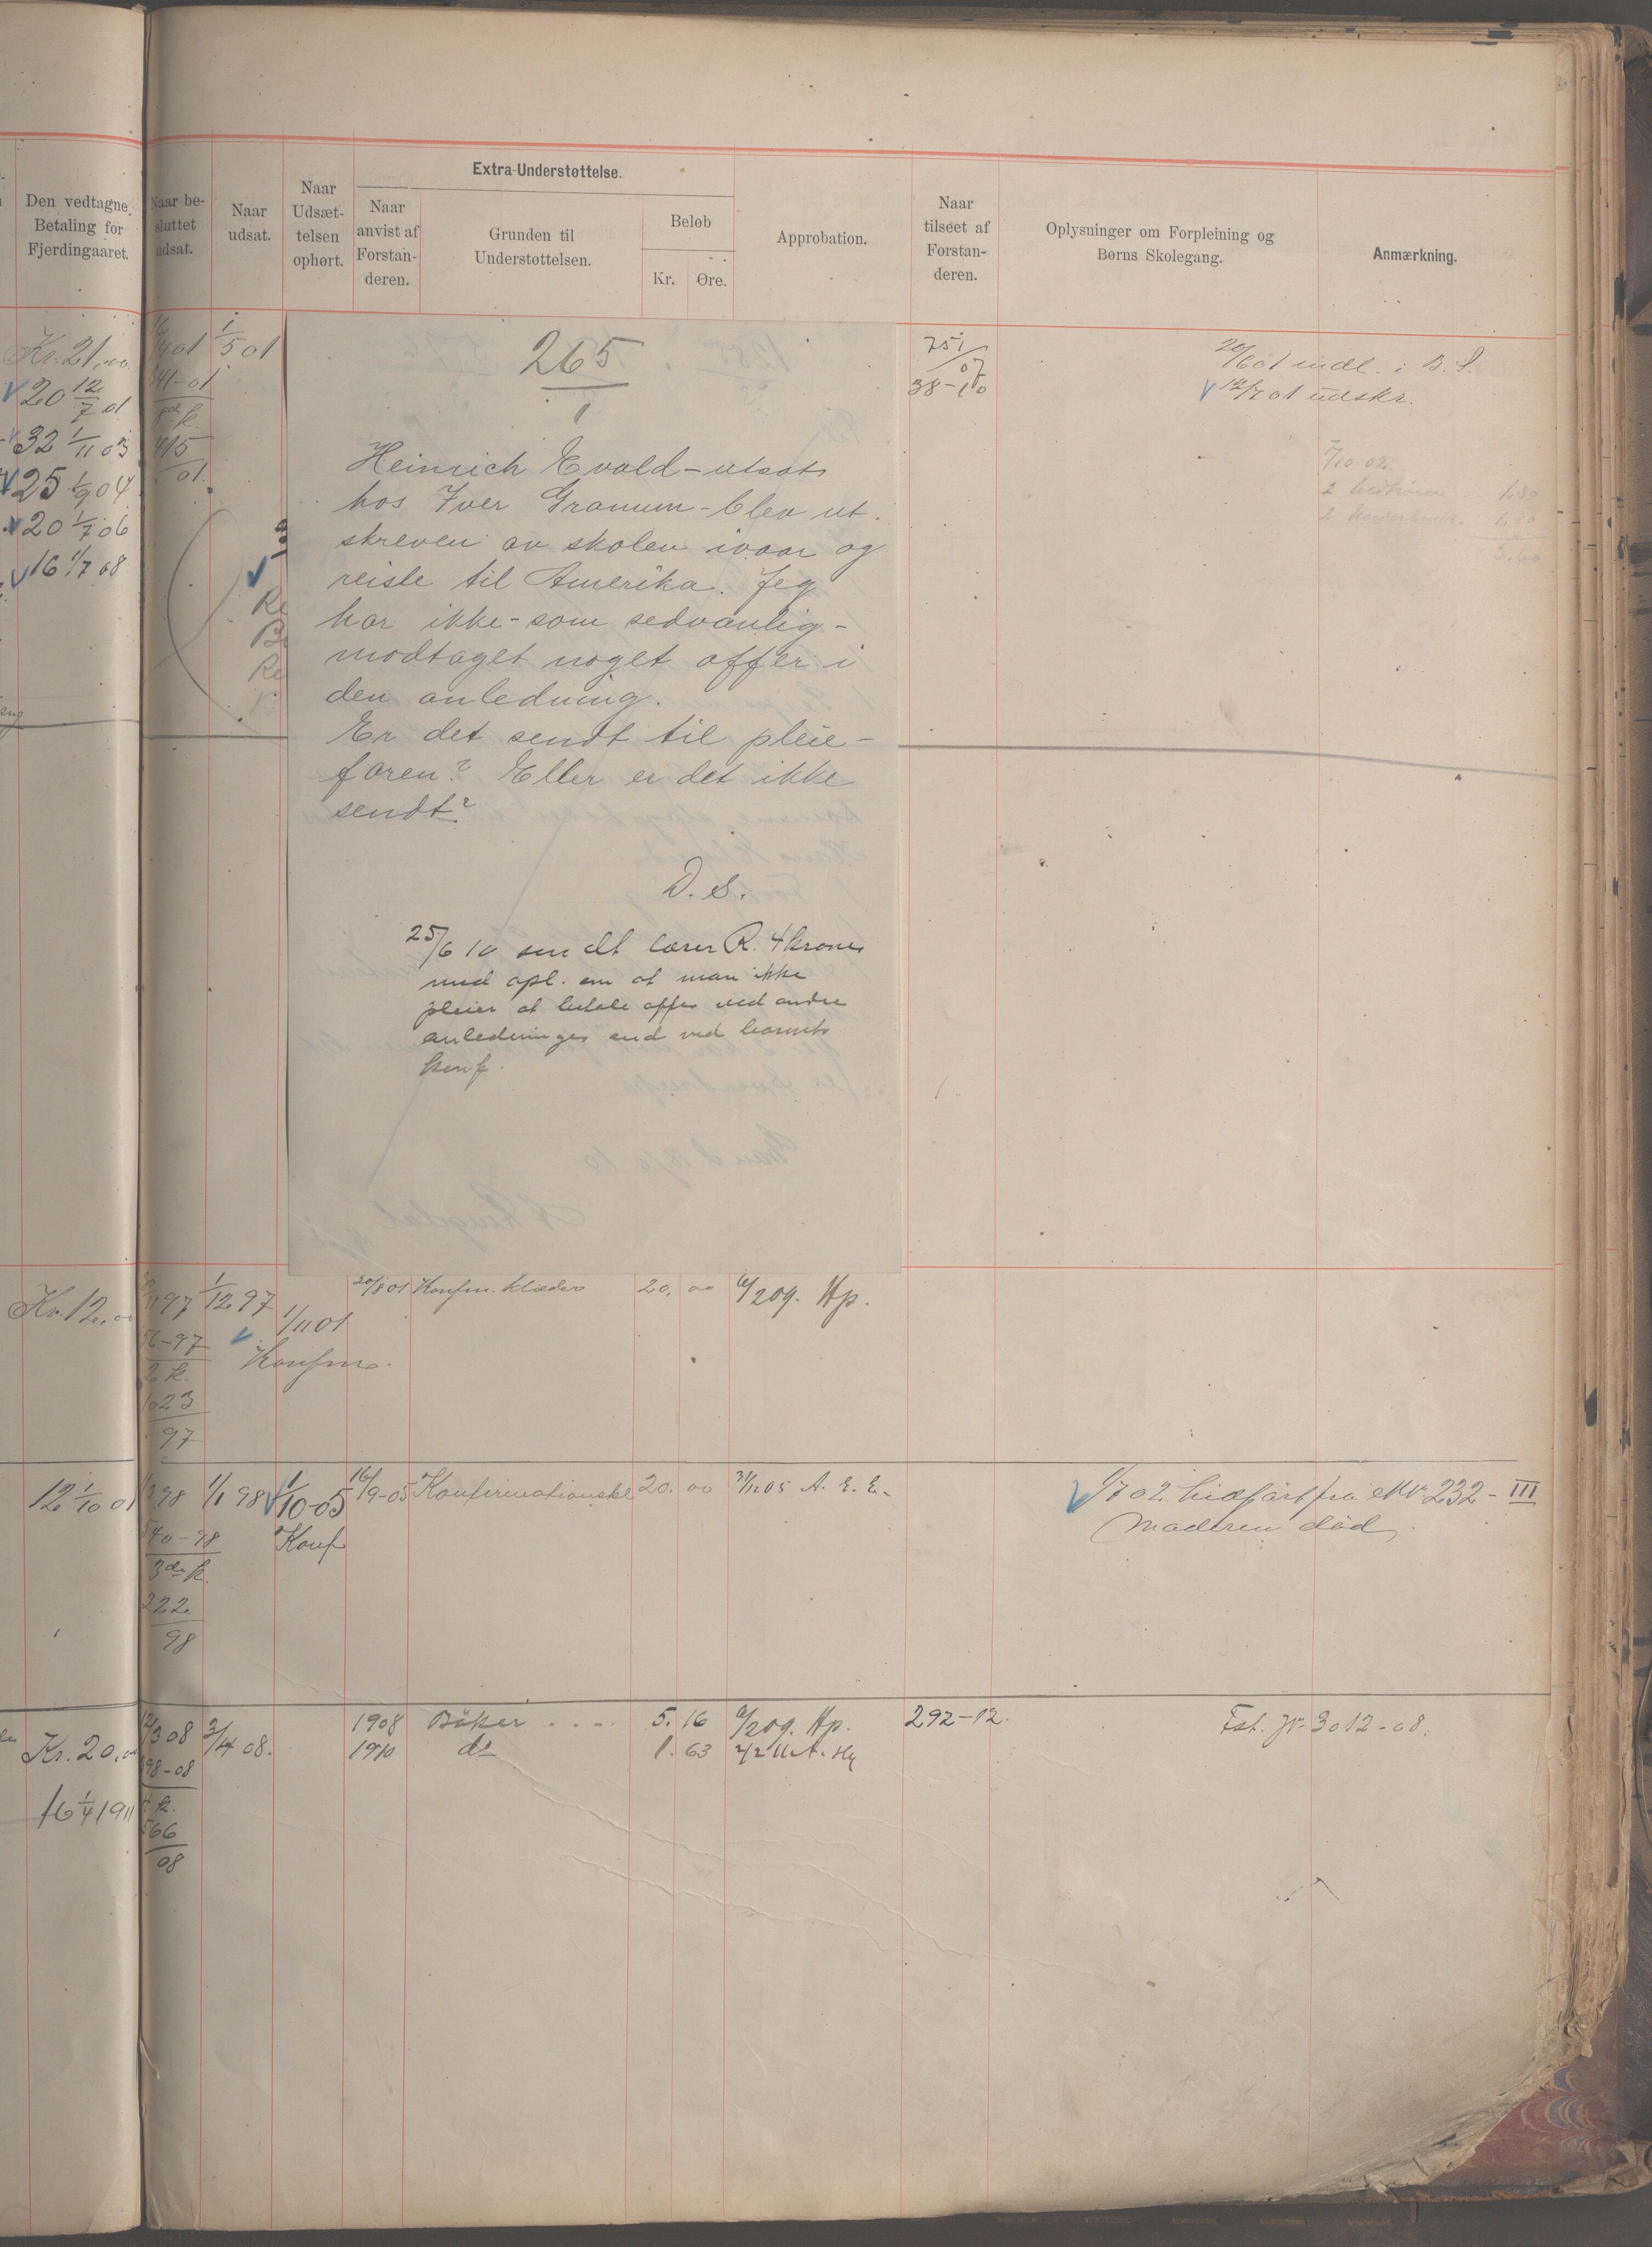 Extra-Understøttelse.
Den vedtagne
Betaling for
Fjerdingaaret.
Naar be-
sluttet
udsat.
Naar
udsat.
Naar
Udsæt-
telsen
ophørt.
Naar
anvist af
Forstan-
deren.
Grunden til
Understøttelsen.
Beløb
Kr. Øre.
Approbation.
Naar
tilseet af
Forstan-
deren.
Oplysninger om Forpleining og
Børns Skolegang.
Anmærkning.
Kr. 21,00
20 12/7 01
32 1/11 03
25 1/9 04
20 1/7 06
16 1/7 08
1/5 01
415
01.
265
1
Heinrich Evald - utsat
hos Iver Granum - blev ut-
skreven av skolen ivaar og
reiste til Amerika. Jeg
har ikke - som sedvanlig -
modtaget noget offer i
den anledning.
Er det sendt til pleie-
faren? Eller er det ikke
sendt?
D. S.
25/6 10 sendt lærer R. 4 kroner
med opl. om at man ikke
pleier at betale offer ved andre
anledninger end ved barnets
konf.
751
07
38-10
20/6 01 indl. i B. S.
12/7 01 udskr.
7/10 02
2
2
5.60
Kr. 12,00
97
1/12 97
56-97
2 k.
1023
97
1/11 01
Konfirm.
20/8 01 Konfm. klæder 20, 00 6/2 09. Hp.
12 1/10 01
98
1/1 98
540-98
3die k.
222
98
1/10-05
Konf
16/9-05 Konfirmationskl 20. 00 31/12 05 A. E. E.
1/7 02 hidført fra Nr 232 - III
Moderen død
Kr. 20,00
16 1/4 1911
3 08
2/4 08.
98-08
k.
566
08
1908 Bøker 5. 16 6/2 09. Hp.
1910 do 1. 63 2/2 11
292-12.
Fst. Jr. 3012-08.